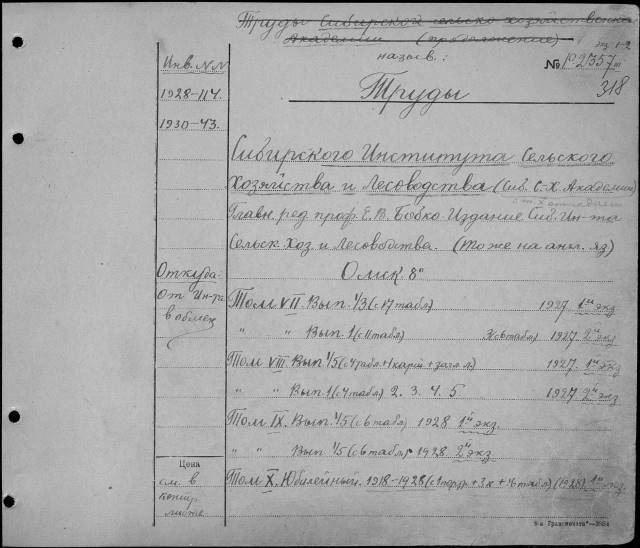 Труды Сибирской сельско хозяйственной
Академии (продолжение)
назыв.:
экз 1-2
№ P2357/III
318
Труды
Инв. №№
1928-114.
1930-43.
Сибирского Института Сельского
Хозяйства и Лесоводства (Сиб. С-Х. Академии)
Главн. ред проф. Е. В. Бобко. Издание Сиб. Ин-та
Сельск Хоз. и Лесоводства. (Тоже на англ. яз)
Омск 8°
Откуда:
От Ин-та
в обмен
Том VII. Вып. 1/3 (с 17 табл) 1927 1й экз
" " Вып. 1 (с 11 табл) 3 (с 6 табл) 1927 2й экз
Том VIII. Вып 1/5 (с 4 табл. + 1 карт + загл л) 1927. 1й экз
" " Вып. 1 (с 4 табл) 2. 3. 4. 5 1927 2й экз
Том IX. Вып. 1/5 (с 6 табл) 1928 1й экз
" " Вып 1/5 (с 6 табл) 1928 2й экз.
Цена
см. в
контр.
листе
Том X. Юбилейный. 1918-1928 (с 1 портр. + 3 к + 16 табл) (1928) 1й экз.